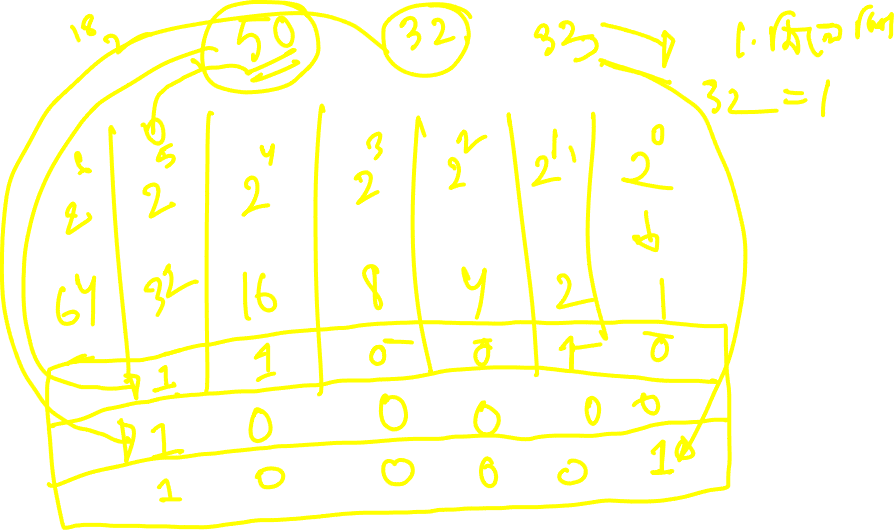 18 2 50 32 32
32 = 1
0
2⁵ 2⁴ 2³ 2² 2¹ 2⁰
64 32 16 8 4 2 1
1 1 0 0 1 0
1 0 0 0 0 0
1 0 0 0 0 1